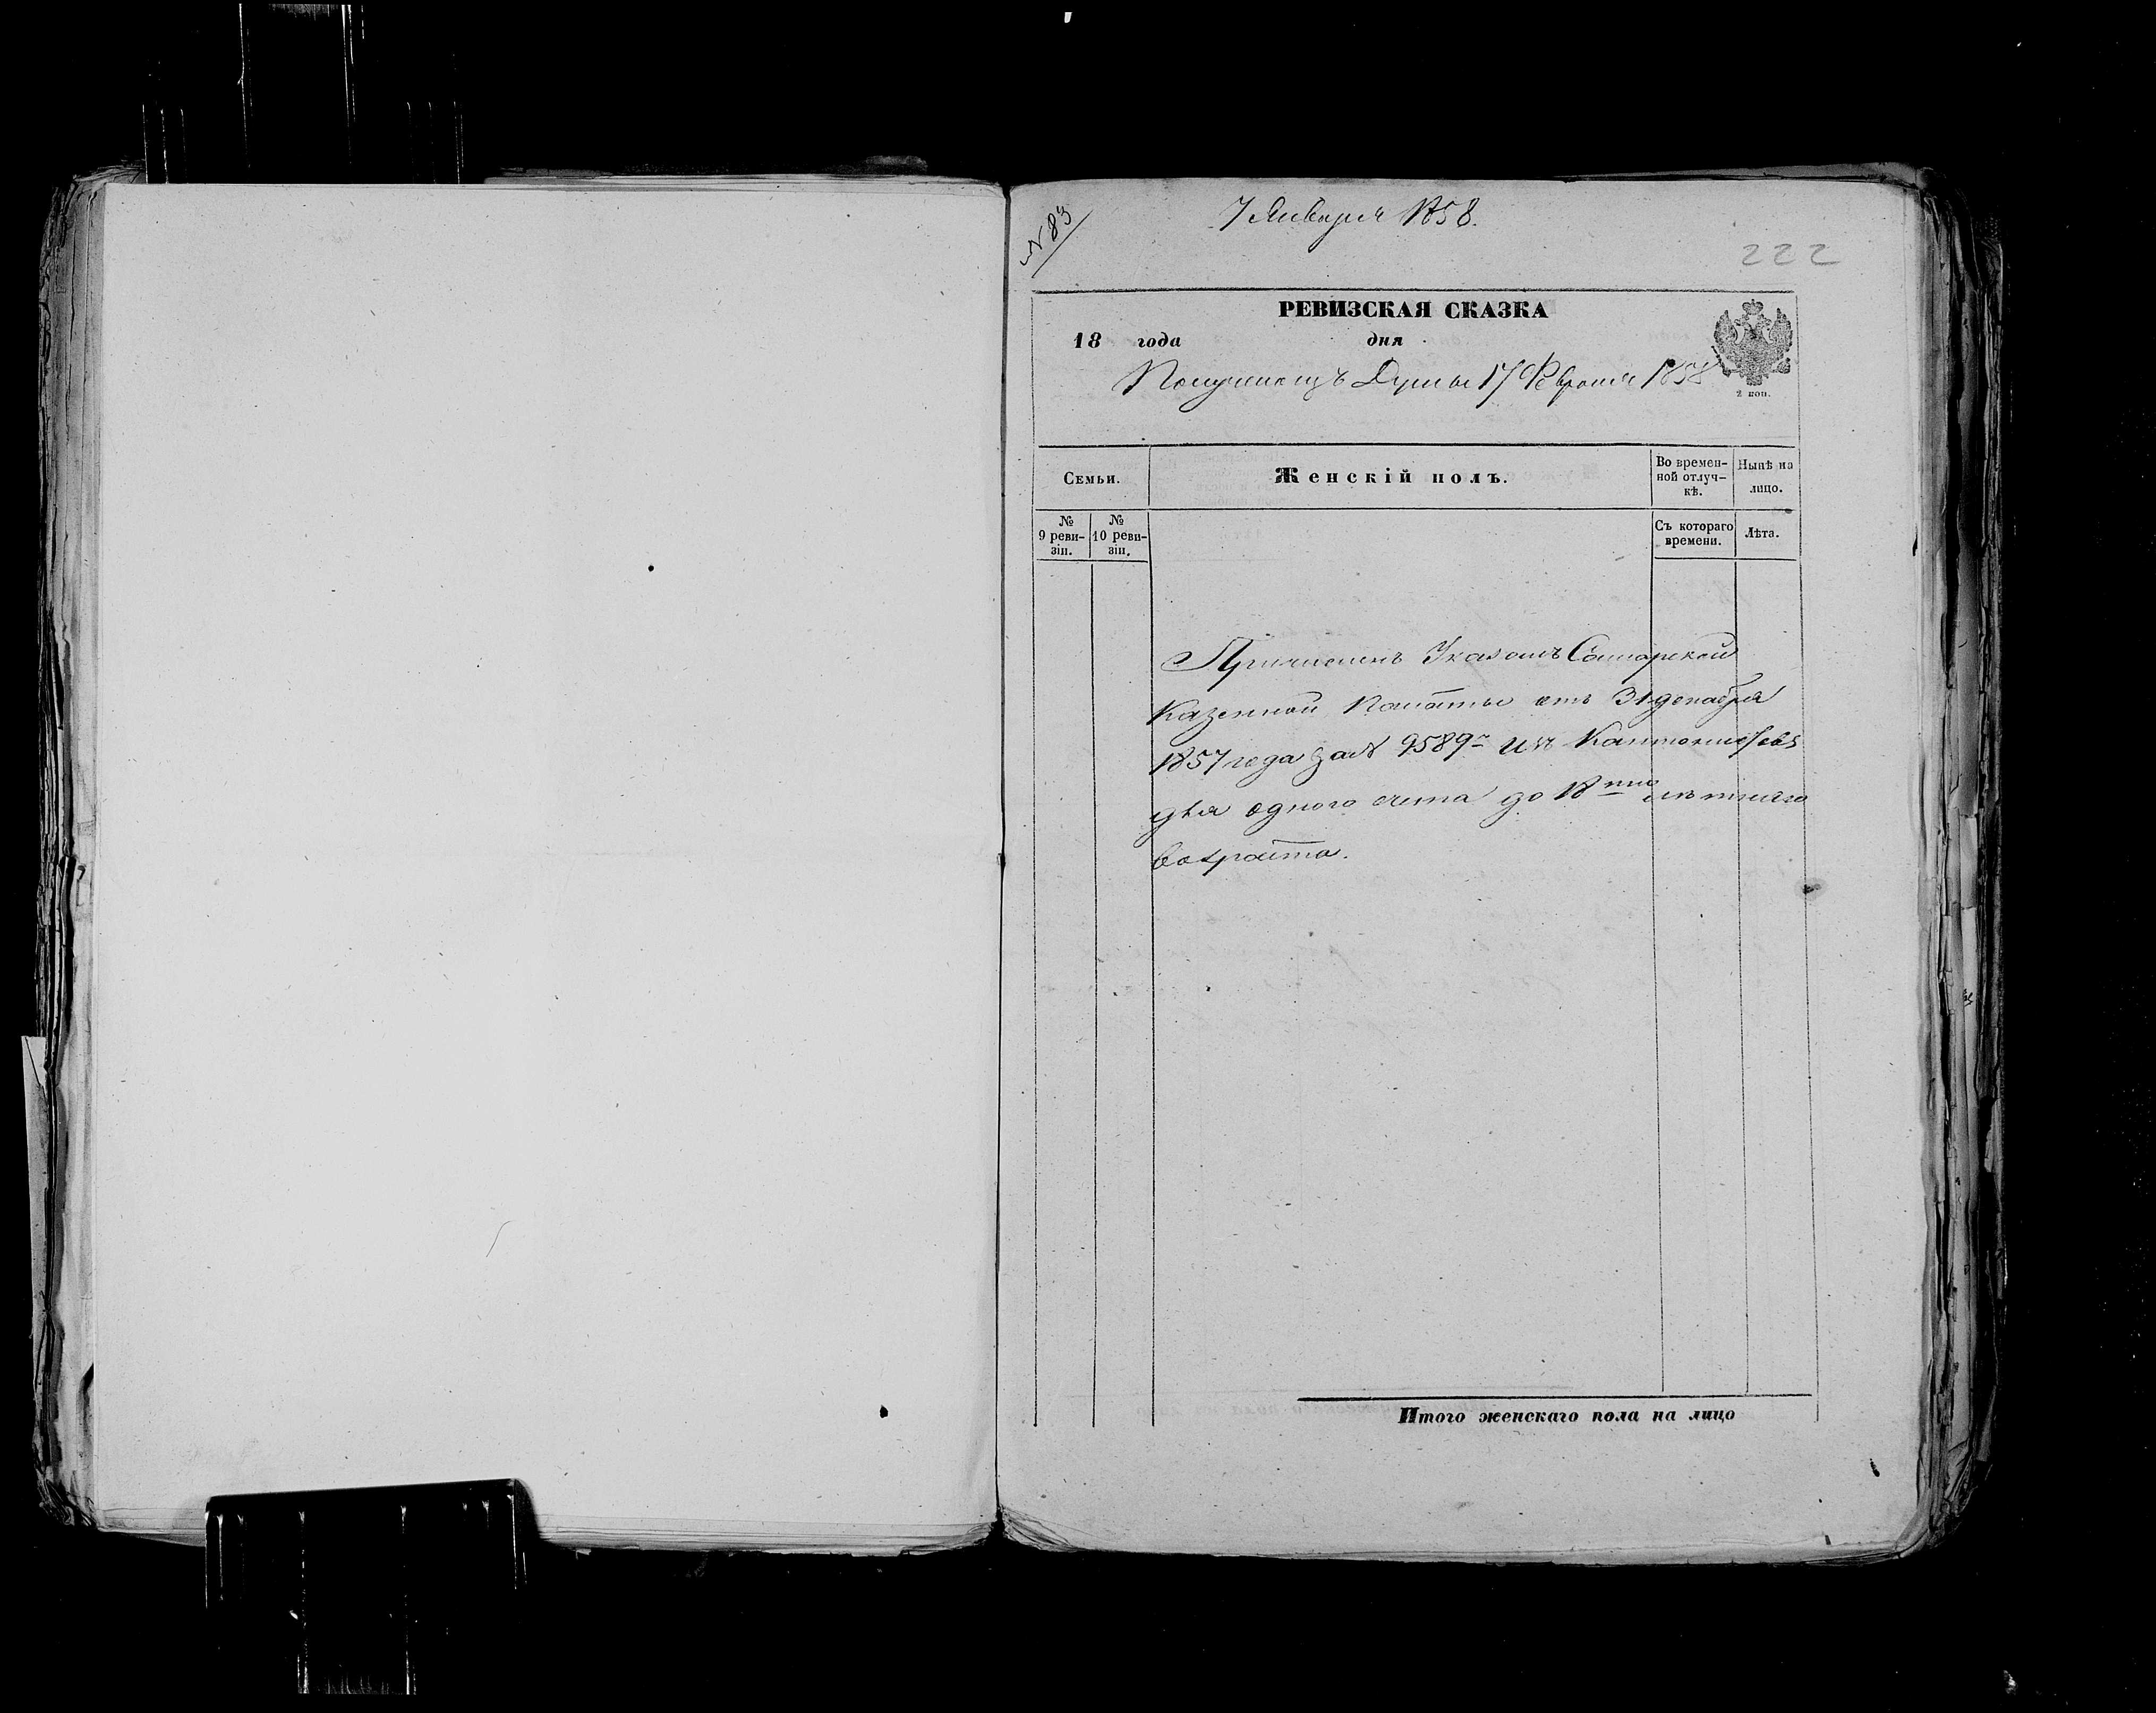 № 83
7 Января 1858.
222
РЕВИЗСКАЯ СКАЗКА
18 года дня
Получена изъ Думы 17 Февраля 1858
2 коп.
Семьи.
Женскій полъ.
Во времен-
ной отлуч-
кѣ.
Нынѣ на
лицо.
№
9 реви-
зіи.
№
10 реви-
зіи.
Съ котораго
времени.
Лѣта.
Причисленъ Указомъ Самарской
Казенной Палаты отъ 31 декабря
1857 года за № 9589м изъ Кантонистовъ
для одного счета до 18ти лѣтняго
возраста.
Итого женскаго пола на лицо